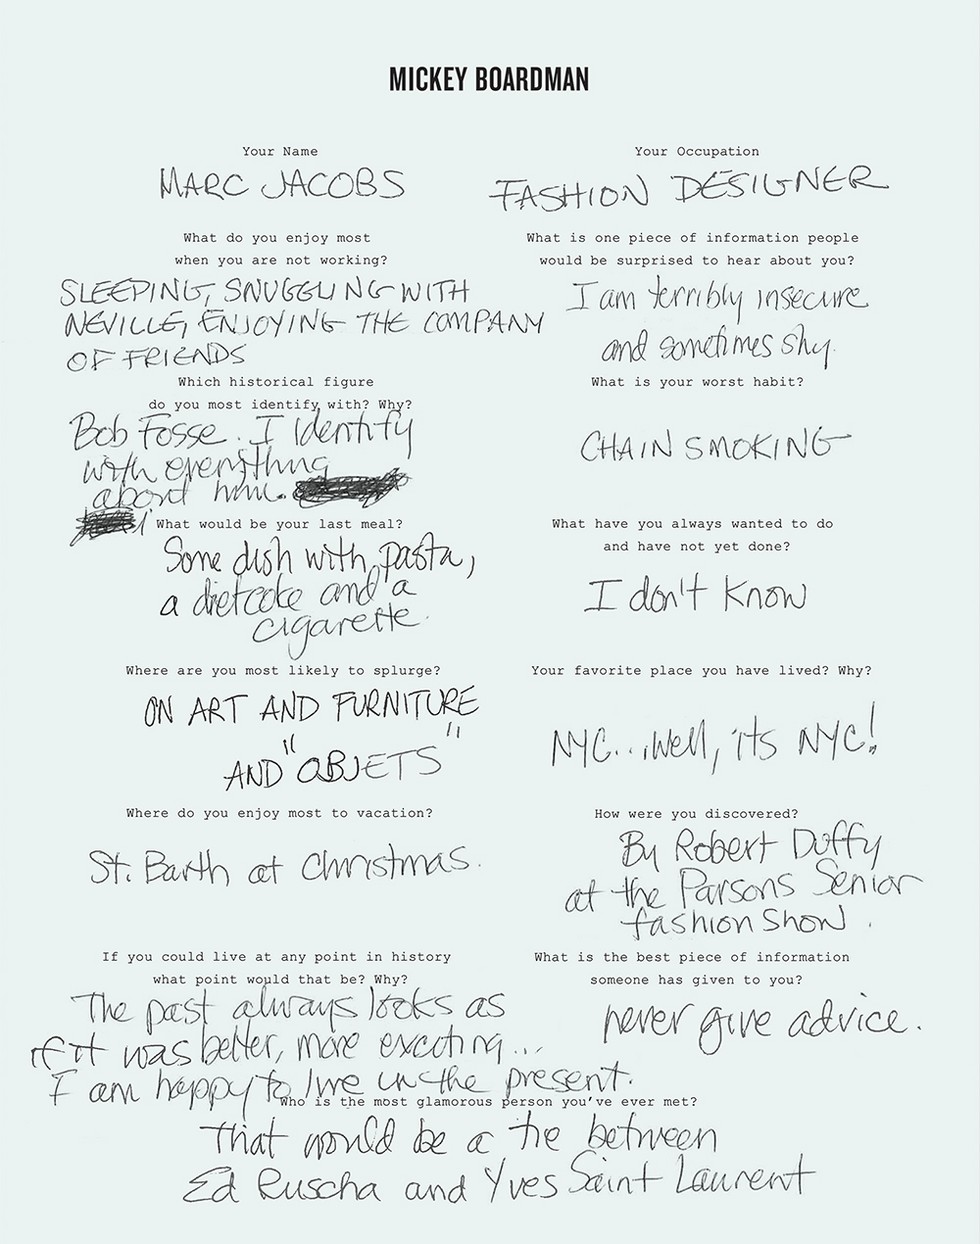 MICKEY BOARDMAN
Your Name
MARC JACOBS
Your Occupation
FASHION DESIGNER
What do you enjoy most
when you are not working?
SLEEPING, SNUGGLING WITH
NEVILLE, ENJOYING THE COMPANY
OF FRIENDS
What is one piece of information people
would be surprised to hear about you?
I am terribly insecure
and sometimes shy.
Which historical figure
do you most identify with? Why?
Bob Fosse. I identify
with everything
about him.
What is your worst habit?
CHAIN SMOKING
What would be your last meal?
Some dish with pasta,
a diet coke and a
cigarette.
What have you always wanted to do
and have not yet done?
I don't know
Where are you most likely to splurge?
ON ART AND FURNITURE
AND "OBJETS"
Your favorite place you have lived? Why?
NYC...Well, its NYC!
Where do you enjoy most to vacation?
St. Barth at Christmas.
How were you discovered?
By Robert Duffy
at the Parsons Senior
fashion show.
If you could live at any point in history
what point would that be? Why?
The past always looks as
if it was better, more exciting...
I am happy to live in the present.
What is the best piece of information
someone has given to you?
never give advice.
Who is the most glamorous person you've ever met?
That would be a tie between
Ed Ruscha and Yves Saint Laurent